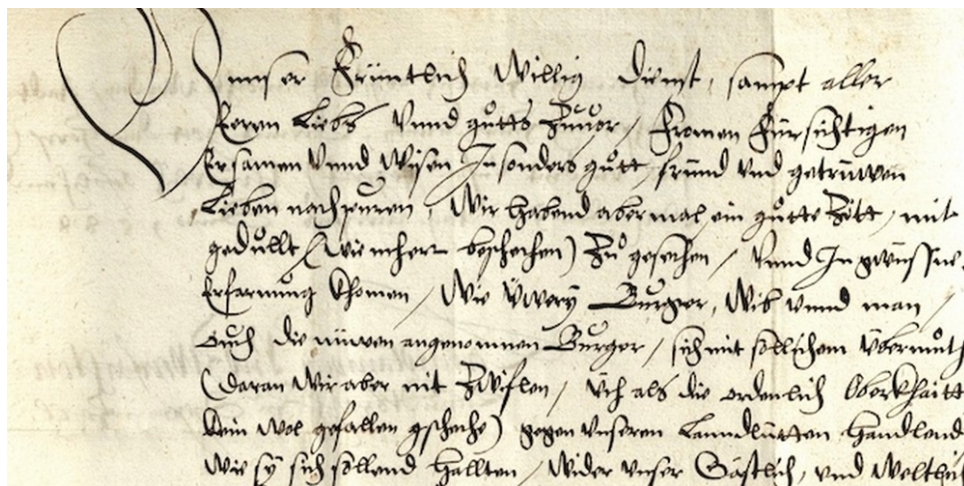 Unnser Früntlich Willig dienst, sampt aller
Eeren Liebs Vnnd gůtts Zůuor / Fromen Fürsichtigen
Ersamen Vnnd Wysen Insonders gůtt fründ vnd getrüwen
Lieben nachpuren, Wir habend abermal ein gůtte Zytt, mit
gedullt (wie mher beschechen) Zů gesechen / Vnnd In gwüsse
Erfarnung khomen / Wie Üwery Burger, Wib vnnd man /
Ouch die nüwen angenomnen Burger / sich mit sollichem übermuth
(daran Wir aber nit Zwiflen / üch als die ordenlich Oberkhaitt
kein wol gefallen gscheche) gegen vnseren Lanndlütten handlend
Wie sy sich sollend hallten / Wider vnser Gaistlich, vnd Welthch